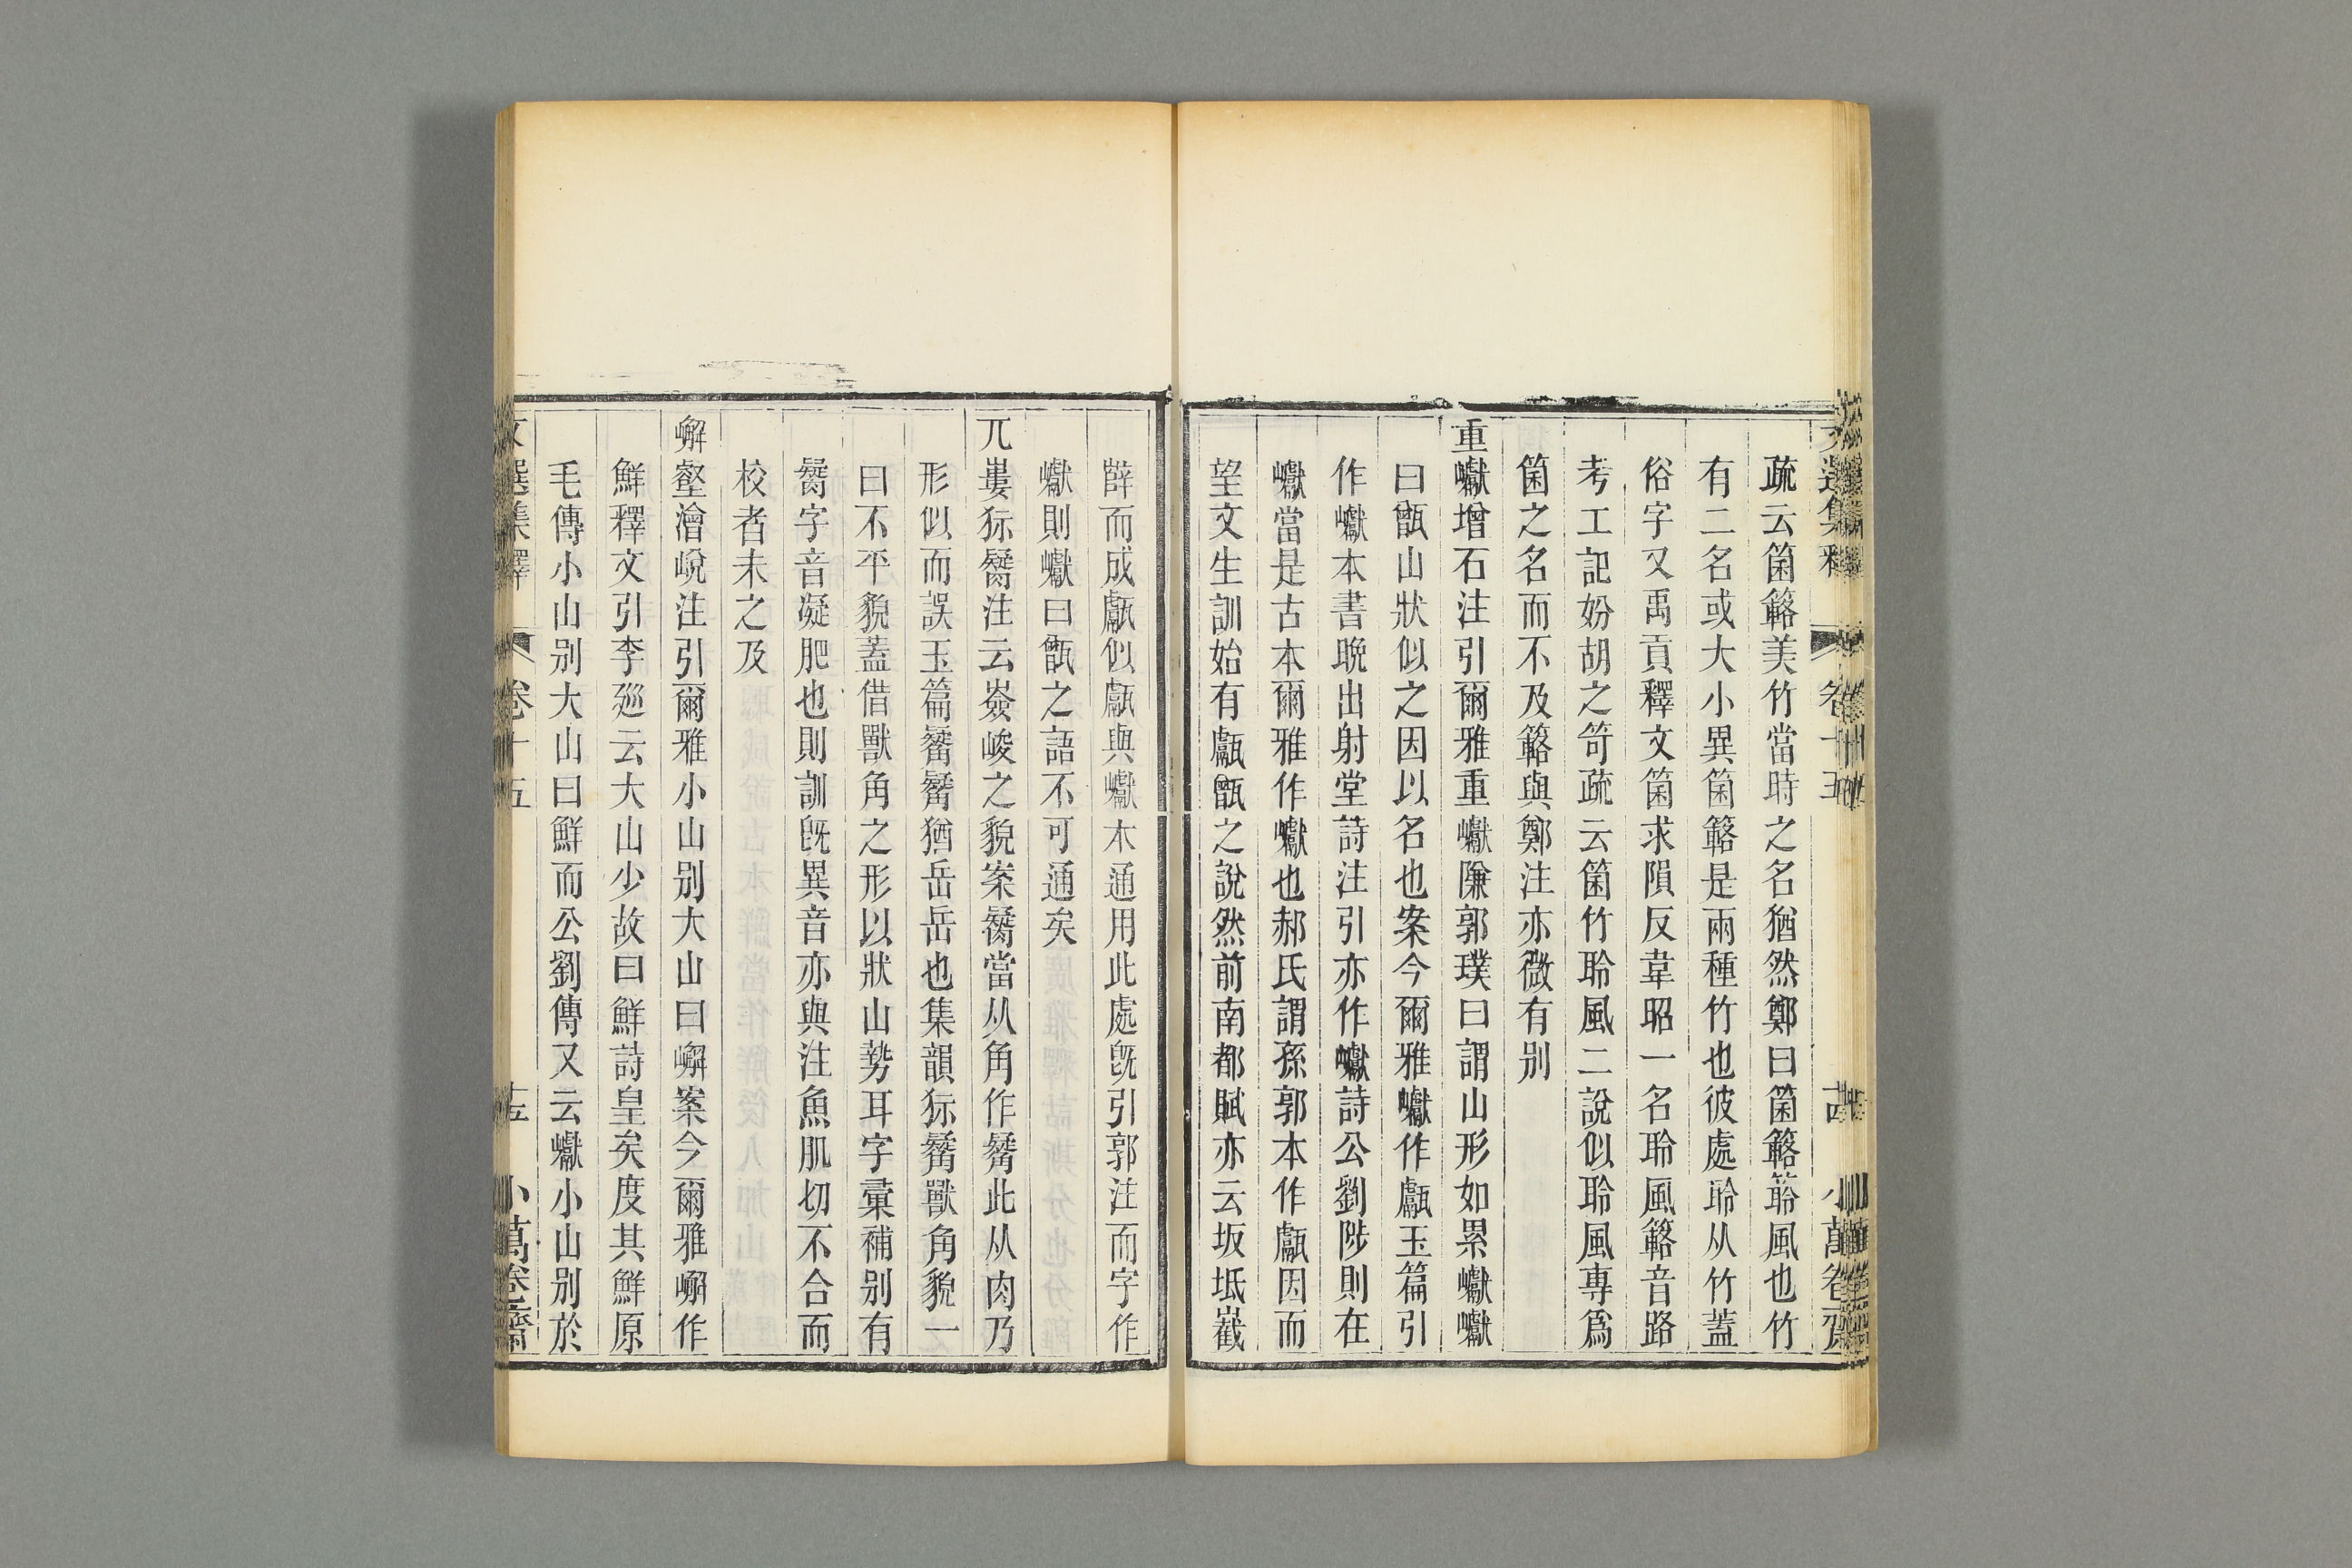 文選集釋 卷十五 十四 小萬卷齋
疏云箘簵美竹當時之名猶然鄭曰箘簵箉風也竹
有二名或大小異箘簵是兩種竹也彼處聆从竹蓋
俗字又禹貢釋文箘求隕反韋昭一名聆風簵音路
考工記妢胡之笴疏云箘竹聆風二說似聆風專爲
箘之名而不及簵與鄭注亦微有别
重巘增石注引爾雅重巘隒郭璞曰謂山形如累巘巘
曰甑山狀似之因以名也案今爾雅巘作甗玉篇引
作巘本書晩出射堂詩注引亦作巘詩公劉陟則在
巘當是古本爾雅作巘也郝氏謂孫郭本作甗因而
望文生訓始有甗甑之說然前南都賦亦云坂坻嶻
嶭而成甗似甗與巘本通用此處旣引郭注而字作
巘則巘曰甑之語不可通矣
兀婁狋觺注云嶔峻之貌案觺當从角作觺此从肉乃
形似而誤玉篇觺觺猶岳岳也集韻狋觺獸角貌一
曰不平貌蓋借獸角之形以狀山勢耳字彙補别有
字音凝肥也則訓旣異音亦與注魚肌切不合而
校者未之及
嶰壑澮㟋注引爾雅小山别大山曰嶰案今爾雅嶰作
鮮釋文引李廵云大山少故曰鮮詩皇矣度其鮮原
毛傳小山别大山曰鮮而公劉傳又云巘小山别於
文選集釋 卷十五 十五 小萬卷齋